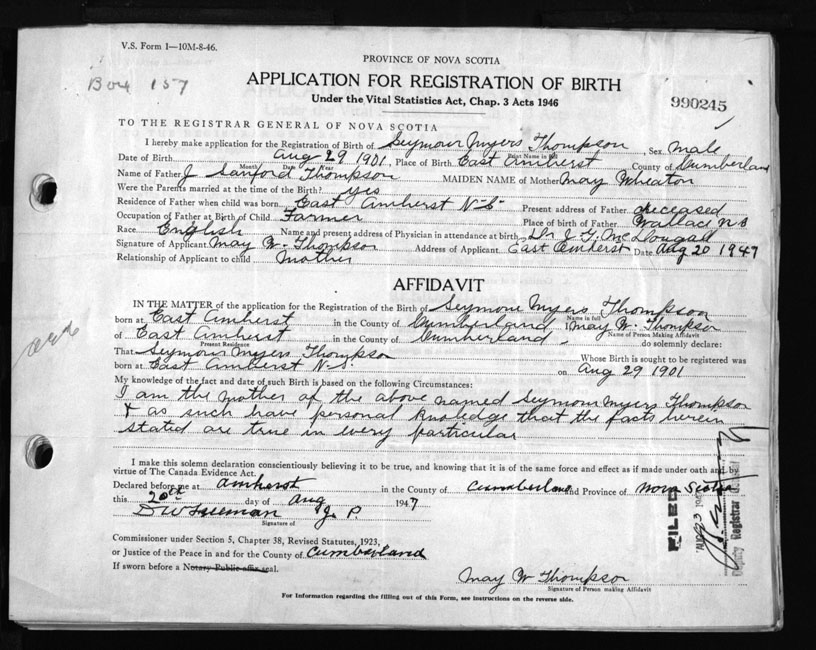 V.S. Form 1—10M-8-46.
Box 157
PROVINCE OF NOVA SCOTIA
APPLICATION FOR REGISTRATION OF BIRTH
Under the Vital Statistics Act, Chap. 3 Acts 1946
990245
TO THE REGISTRAR GENERAL OF NOVA SCOTIA
I hereby make application for the Registration of Birth of Seymour Myers Thompson, Sex Male
Print Name in full
Date of Birth Aug 29 1901, Place of Birth East Amherst County of Cumberland
Month Date Year
Name of Father J Sanford Thompson MAIDEN NAME of Mother May Wheaton
Were the Parents married at the time of the Birth? yes
Residence of Father when child was born East Amherst N.S. Present address of Father deceased
Occupation of Father at Birth of Child Farmer Place of birth of Father Wallace N S
Race English Name and present address of Physician in attendance at birth Dr J. G. McDougall
Signature of Applicant May W. Thompson Address of Applicant East Amherst Date Aug 20 1947
Relationship of Applicant to child Mother
AFFIDAVIT
IN THE MATTER of the application for the Registration of the Birth of Seymour Myers Thompson
Name in full
born at East Amherst in the County of Cumberland I May W. Thompson
Name of Person Making Affidavit
of East Amherst in the County of Cumberland, do solemnly declare:
Present Residence
That Seymour Myers Thompson Whose Birth is sought to be registered was
born at East Amherst N.S. on Aug 29 1901
My knowledge of the fact and date of such Birth is based on the following Circumstances:
I am the mother of the above named Seymour Myers Thompson
& as such have personal knoledge that the facts herein
stated are true in every particular
I make this solemn declaration conscientiously believing it to be true, and knowing that it is of the same force and effect as if made under oath and by
virtue of The Canada Evidence Act.
Declared before me at Amherst in the County of Cumberland and Province of Nova Scotia
this 20th day of Aug 1947
D W Freeman J. P.
Signature of
Commissioner under Section 5, Chapter 38, Revised Statutes, 1923,
or Justice of the Peace in and for the County of Cumberland
If sworn before a Notary Public affix seal.
May W Thompson
Signature of Person making Affidavit
For Information regarding the filling out of this Form, see instructions on the reverse side.
FILED
Deputy Registrar